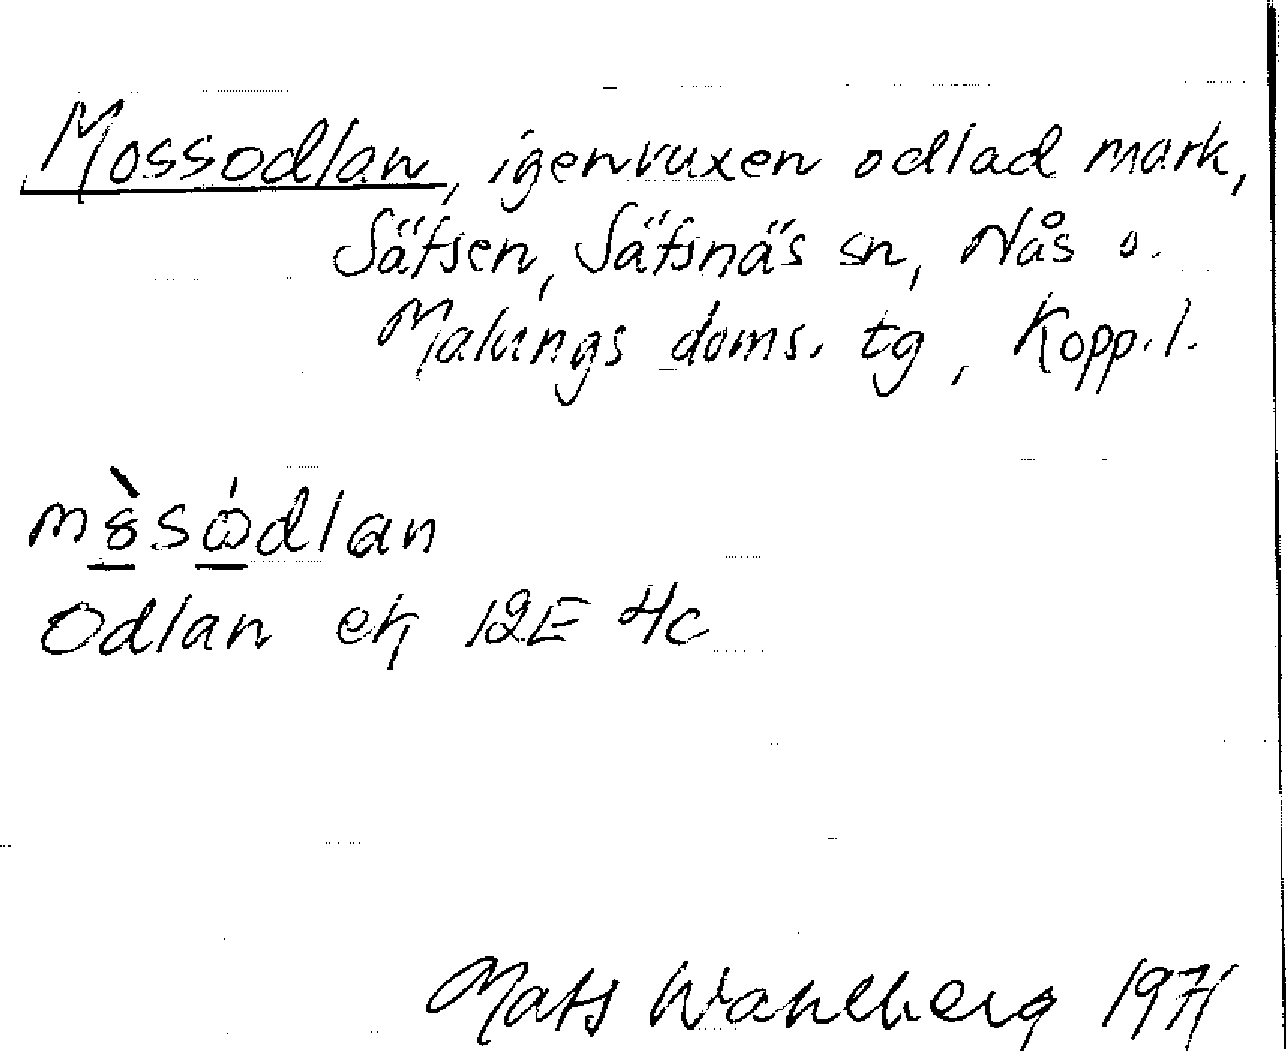 Mossodlan, igenvuxen odlad mark,
Säfsen, Säfsnäs sn, Nås o.
Malungs doms. tg, Kopp. l.
Odlan ek 12E 4c
Mats Wahlberg 1971